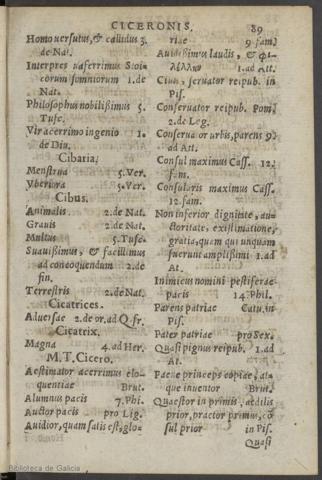 CICERONIS.
89
Homo versutus, & callidus 3.
de Nat.
Interpres vaferrimus Stoi-
corum somniorum 1. de
Nat.
Philosophus nobilißimus 5.
Tusc.
Vir acerrimo ingenio 1.
de Diu.
Cibaria.
Menstrua 5. Ver.
Vberiora 5. Ver.
Cibus.
Animalis 2. de Nat.
Grauis 2. de Nat.
Multus 5. Tusc.
Suauißimus, & facillimus
ad concoquendum 2. de
fin.
Terrestris 2. de Nat.
Cicatrices.
Aduersae 2. de or. ad Q. fr.
Cicatrix.
Magna 4. ad Her.
M. T. Cicero.
Aestimator acerrimus elo-
quentiae Brut.
Alumnus pacis 7. Phi.
Auctor pacis pro Lig.
Auidior, quam satis est, glo-
riae 9 fam.
Auidißimus laudis, & φι-
λέλλην 1. ad Att.
Ciuis, seruator reipub. in
Pis.
Conseruator reipub. Pom.
2. de Leg.
Conseruator vrbis, parens 9.
ad Att.
Consul maximus Cass. 12.
fam.
Consularis maximus Cass.
12. fam.
Non inferior dignitate, au-
ctoritate, existimatione,
gratia, quam qui unquam
fuerunt amplißimi 1. ad
At.
Inimicus nomini pestiferae
pacis 14. Phil.
Parens patriae Catu. in
Pis.
Pater patriae pro Sex.
Quasi pignus reipub. 1. ad
At.
Paene princeps copiae, at-
que inuentor Brut.
Quaestor in primis, aedilis
prior, praetor primus, cō
sul prior in Pis.
Quasi
Biblioteca de Galicia